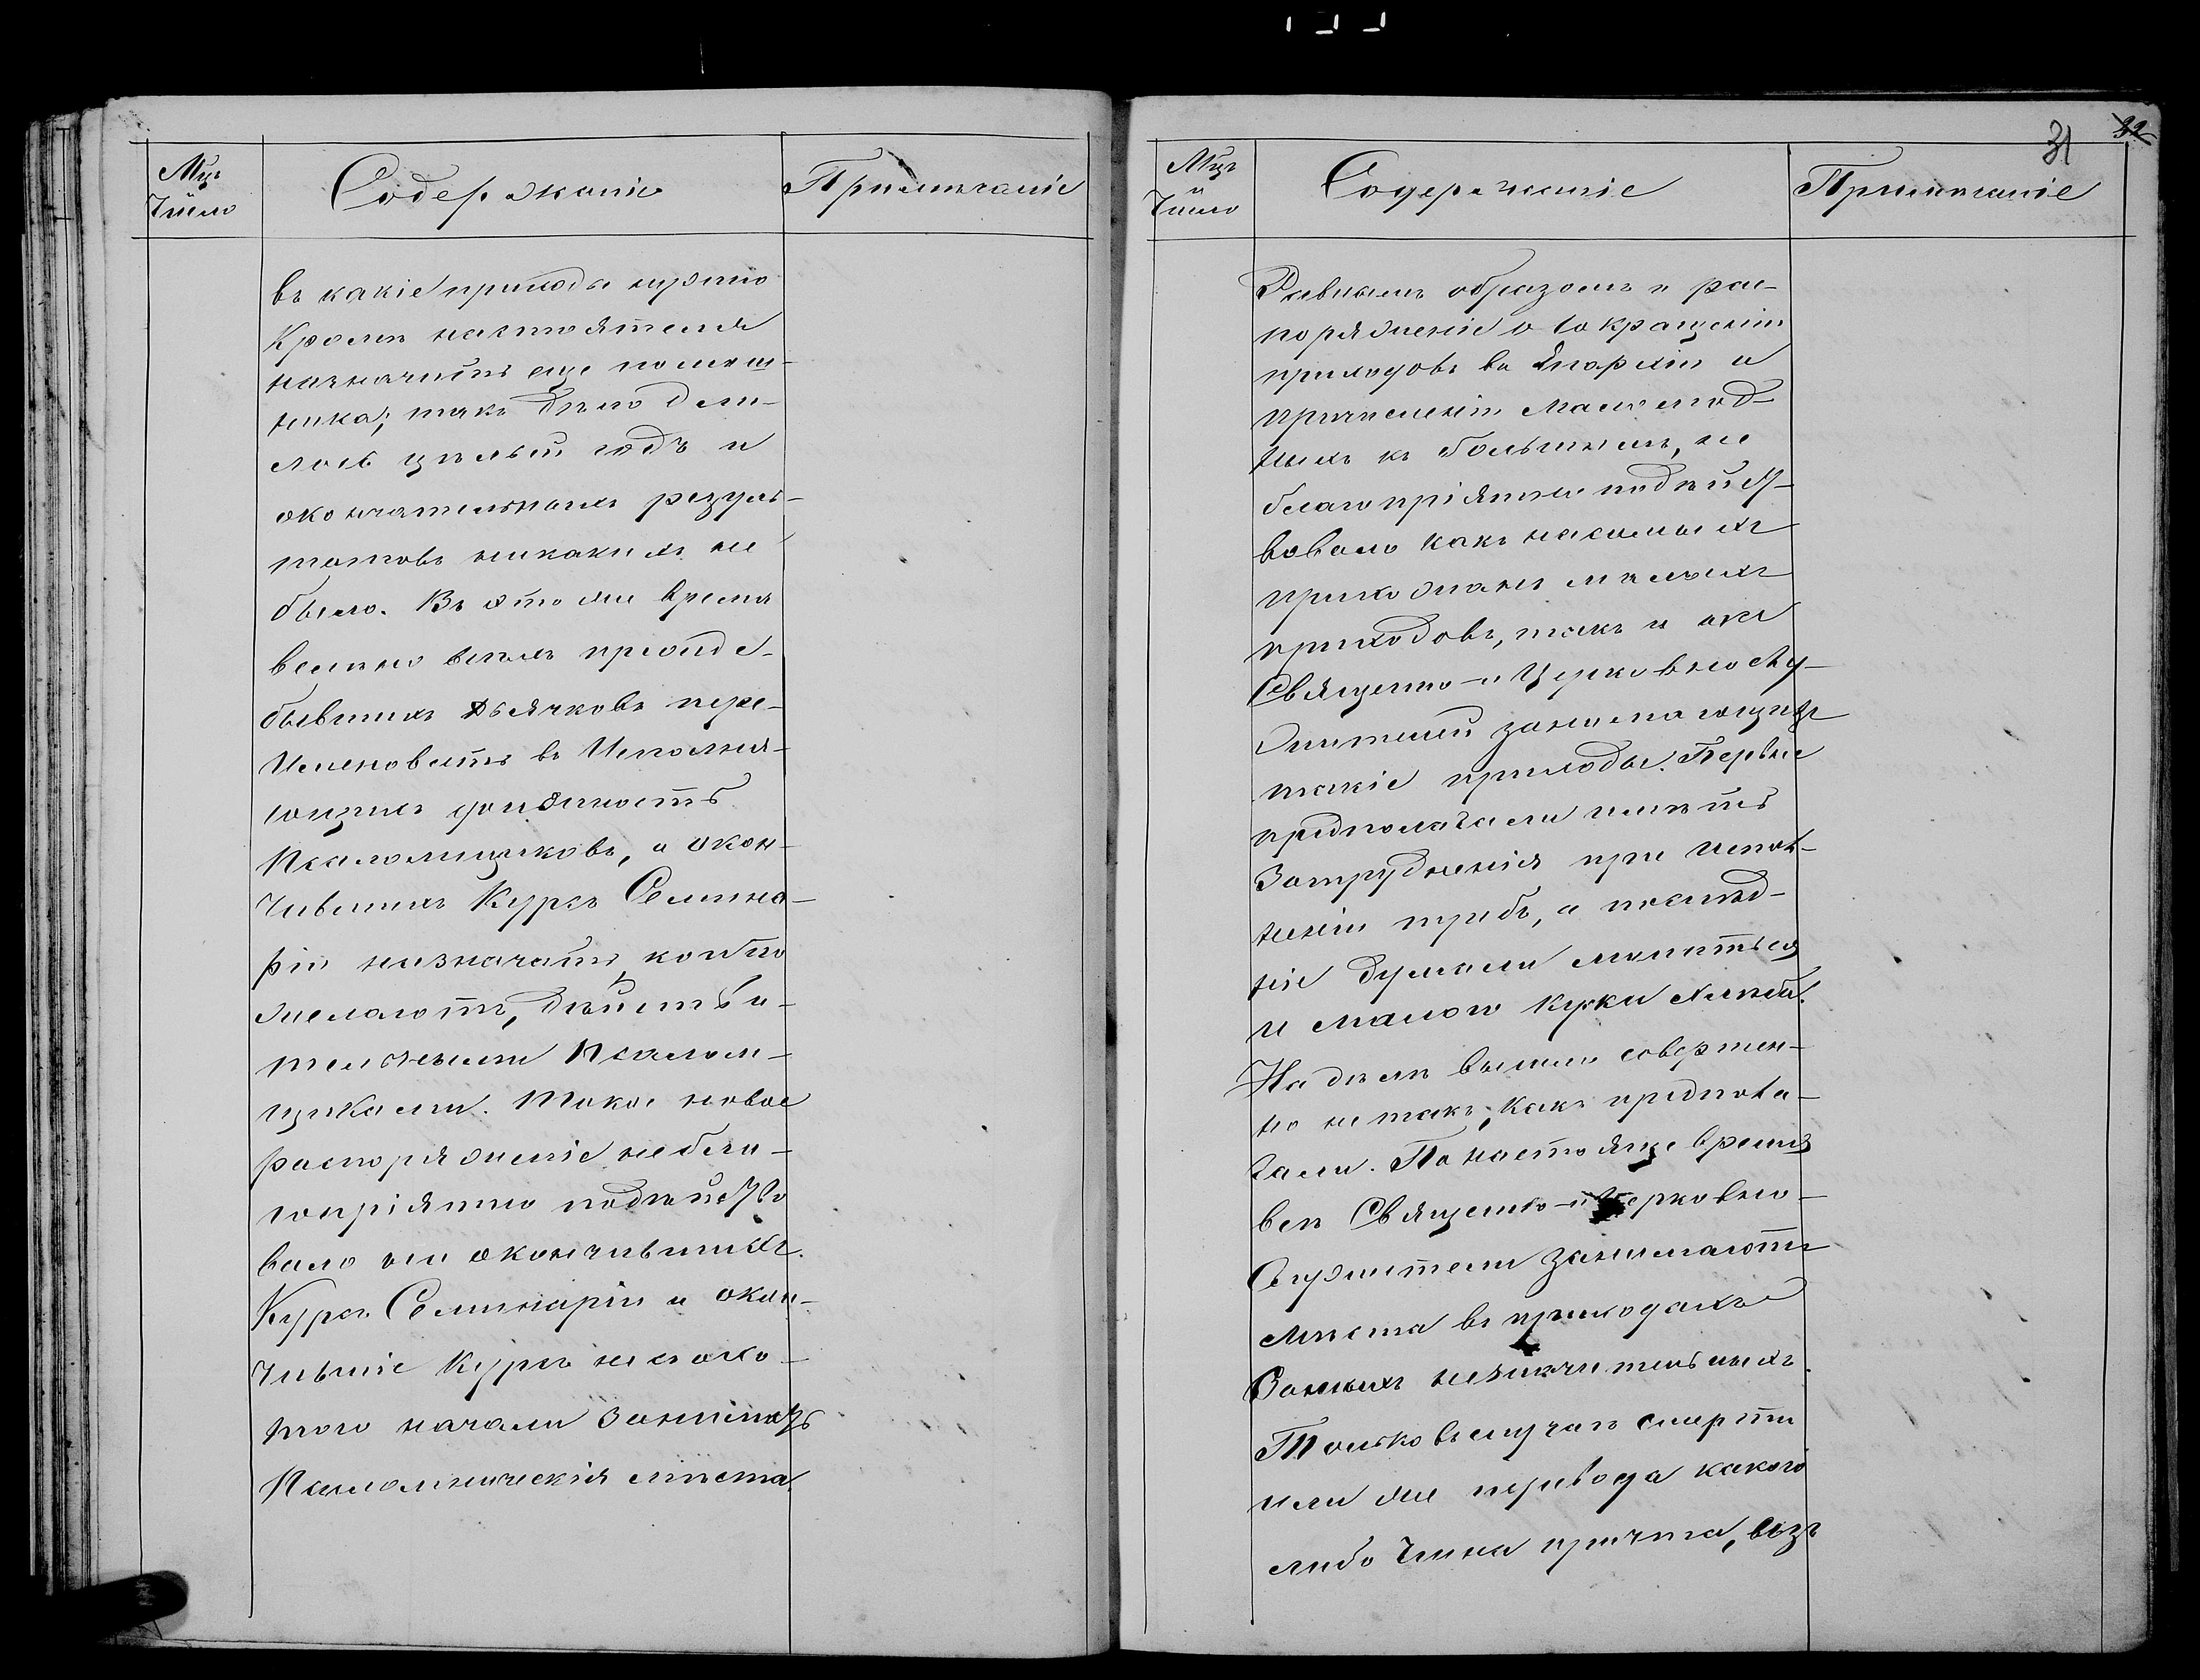 Мцъ
и
Число
Содержаніе
Примѣчаніе
въ какіе приходы нужно
Кромѣ настоятеля
назначить еще помощ-
ника; такъ дѣло дли-
лось цѣлый годъ и
окончательныхъ резуль-
татовъ никакихъ не
было. Въ это же время
велѣно всѣхъ преждe-
бывшихъ Дьячковъ пере-
Именовать въ Исполня-
ющихъ должность
Псаломщиковъ, а окон-
чившихъ Курсъ Семина-
ріи назначать, кои то
желаютъ, дѣйстви-
тельными Псалом-
щиками. Такое новое
распоряженіе небла-
гопріятно подѣйство
вало на окончившихъ.
Курсъ Семинаріи и окон-
чившіе Курсъ не съ охо-
тою начали занимать
Псаломническія мѣста.
31 32
Мцъ
и
Число
Содержаніе
Примѣчаніе
Равнымъ образомъ и рас-
поряженіе о сокращеніи
приходовъ въ Епархіи и
причисленіи Маломод-
ныхъ къ большимъ, не
благопріятно подѣйст-
вовало какъ на самыхъ
прихожанъ малыхъ
приходовъ, такъ и на
Священно-и Церковнослу-
жителей занимающихъ
такіе приходы. Первые
предполагали имѣть
Затрудненія при испол-
неніи требъ, а послѣд-
ніе думали лишиться
и малого куска хлѣба.
На дѣлѣ вышло совершен-
но не такъ, какъ предпола-
гали. По настоящее время
всѣ Священно-и Церковно-
Служители занимаютъ
мѣста въ приходахъ
Заштатныхъ.
Только въ случаѣ смерти
или же перевода какого
либо Члена причта, безъ